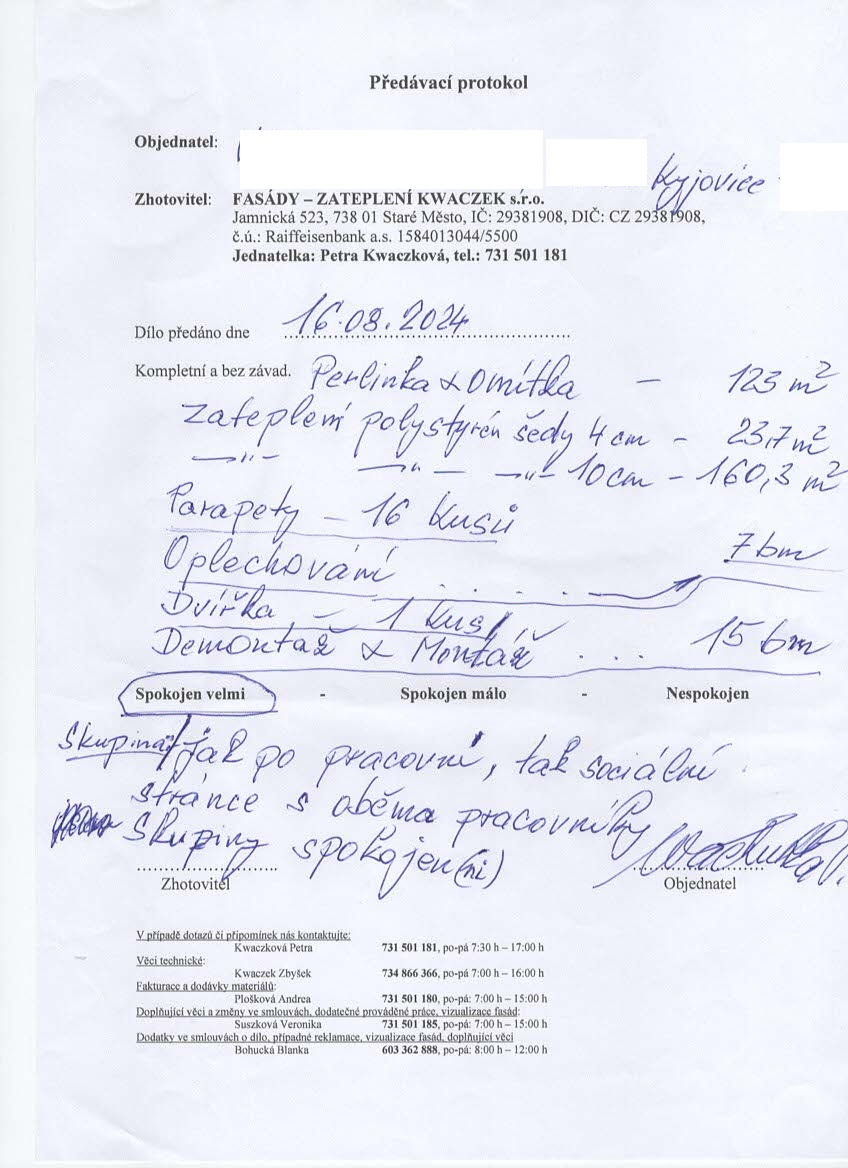 Předávací protokol
Objednatel:
Kyjovice
Zhotovitel: FASÁDY – ZATEPLENÍ KWACZEK s.r.o.
Jamnická 523, 738 01 Staré Město, IČ: 29381908, DIČ: CZ 29381908,
č.ú.: Raiffeisenbank a.s. 1584013044/5500
Jednatelka: Petra Kwaczková, tel.: 731 501 181
Dílo předáno dne 16.08.2024
Kompletní a bez závad. Perlinka & Omítka – 123 m²
Zateplení polystyrén šedy 4 cm – 23,7 m²
—„— —„— —„— 10cm – 160,3 m²
Parapety – 16 Kusů
Oplechování . . . . 7 bm
Dvířka – 1 Kus
Demontáž & Montáž . . . 15 bm
Spokojen velmi - Spokojen málo - Nespokojen
Skupina jak po pracovní, tak sociální
stránce s oběma pracovníky
Skupiny spokojen(ni)
Zhotovitel Objednatel
V případě dotazů či připomínek nás kontaktujte:
Kwaczková Petra 731 501 181, po-pá 7:30 h – 17:00 h
Věci technické:
Kwaczek Zbyšek 734 866 366, po-pá 7:00 h – 16:00 h
Fakturace a dodávky materiálů:
Plošková Andrea 731 501 180, po-pá: 7:00 h – 15:00 h
Doplňující věci a změny ve smlouvách, dodatečné prováděné práce, vizualizace fasád:
Suszková Veronika 731 501 185, po-pá: 7:00 h – 15:00 h
Dodatky ve smlouvách o dílo, případné reklamace, vizualizace fasád, doplňující věci
Bohucká Blanka 603 362 888, po-pá: 8:00 h – 12:00 h